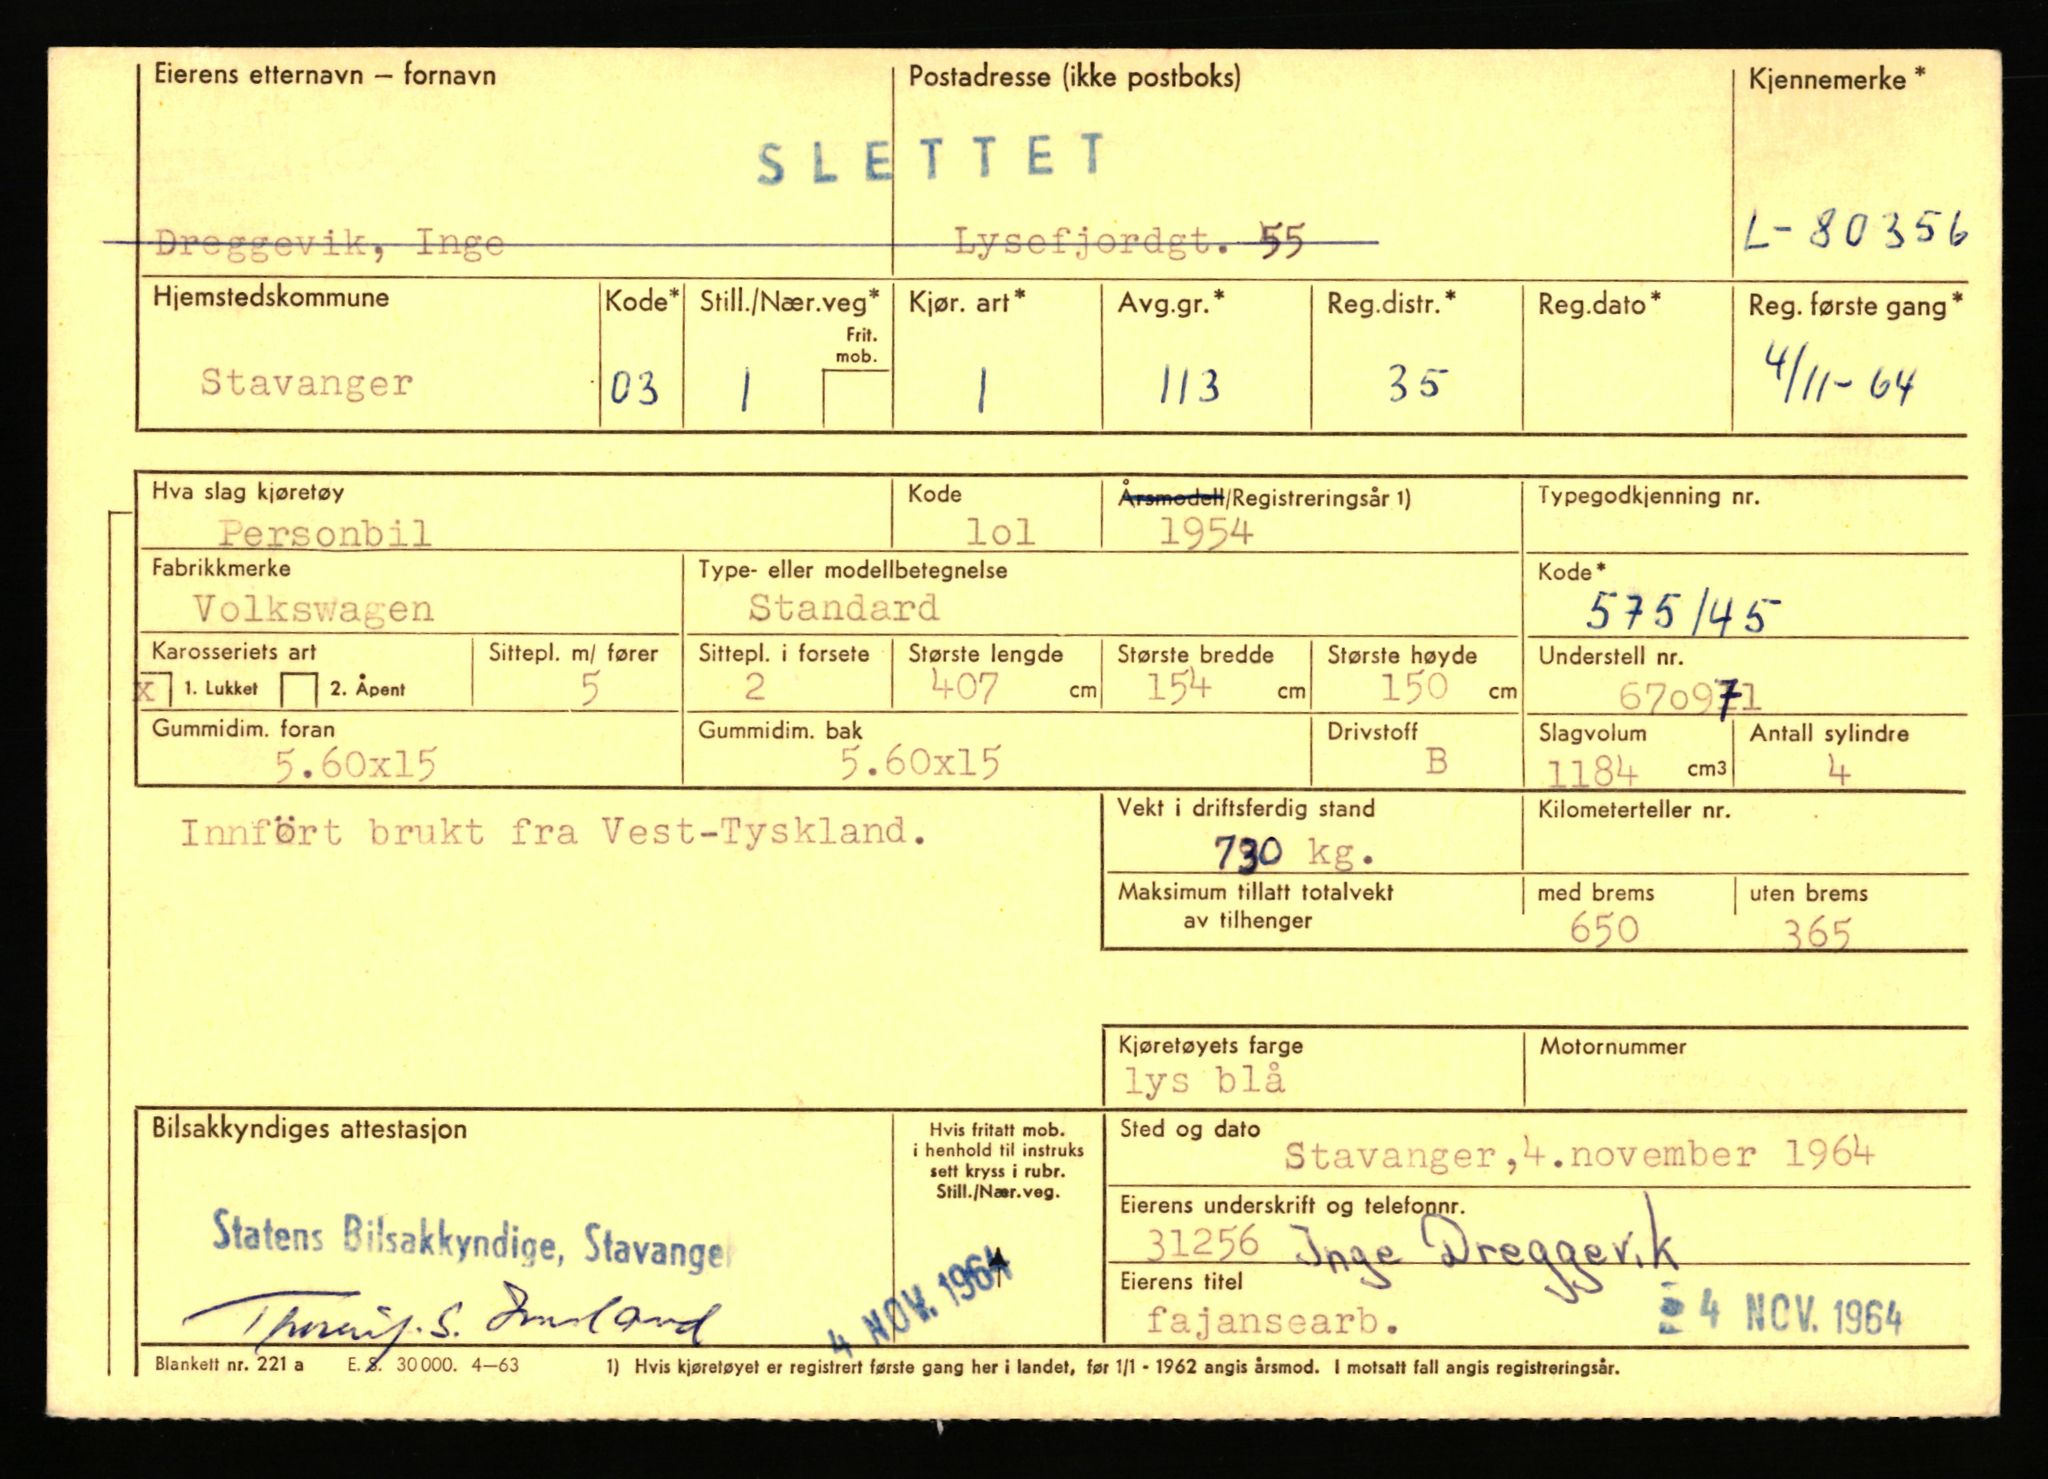 Eierens etternavn – fornavn Postadresse (ikke postboks) Kjennemerke*
SLETTET
Dreggevik, Inge Lysefjordgt. 55 L-80356
Hjemstedskommune Kode* Still./Nær.veg* Kjør. art* Avg.gr.* Reg.distr.* Reg.dato* Reg. første gang*
Frit.
mob.
Stavanger 03 1 1 113 35 4/11-64
Hva slag kjøretøy Kode Årsmodell/Registreringsår 1) Typegodkjenning nr.
Personbil lol 1954
Fabrikkmerke Type- eller modellbetegnelse Kode*
Volkswagen Standard 575/45
Karosseriets art Sittepl. m/ fører Sittepl. i forsete Største lengde Største bredde Største høyde Understell nr.
x 1. Lukket 2. Åpent 5 2 407 cm 154 cm 150 cm 670971
Gummidim. foran Gummidim. bak Drivstoff Slagvolum Antall sylindre
5.60x15 5.60x15 B 1184 cm3 4
Innført brukt fra Vest-Tyskland.
Vekt i driftsferdig stand Kilometerteller nr.
730 kg.
Maksimum tillatt totalvekt med brems uten brems
av tilhenger 650 365
Kjøretøyets farge Motornummer
lys blå
Bilsakkyndiges attestasjon
Hvis fritatt mob.
i henhold til instruks
sett kryss i rubr.
Still./Nær.veg.
Sted og dato
Stavanger,4.november 1964
Statens Bilsakkyndige, Stavanger
4 NOV. 1964
Eierens underskrift og telefonnr.
31256 Inge Dreggevik
Eierens titel
fajansearb. 4 NOV. 1964
Blankett nr. 221 a E. S. 30 000. 4–63 1) Hvis kjøretøyet er registrert første gang her i landet, før 1/1 - 1962 angis årsmod. I motsatt fall angis registreringsår.